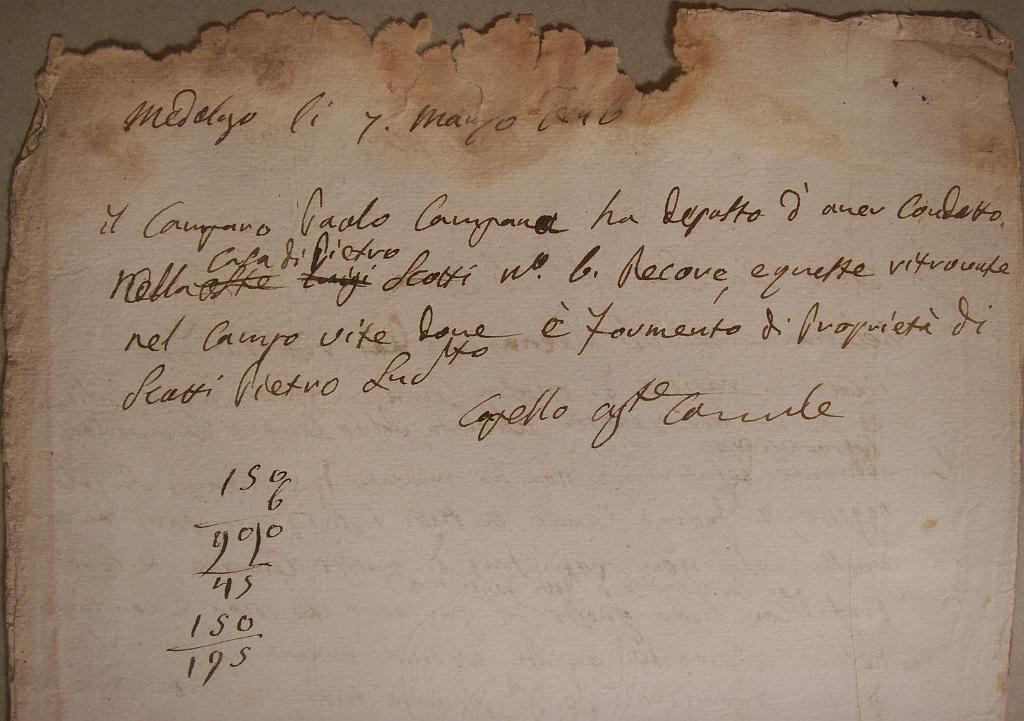 Medolago li 7. Marzo 1846
il Camparo Paolo Campana ha deposto d'aver Condotto
Casa di Pietro
Nella Scotti n.º 6. Pecore, e queste ritrovate
nel Campo vite dove è Formento di Proprietà di
Scotti Pietro Sudto
Capello agte Comle
150
6
900
45
150
195